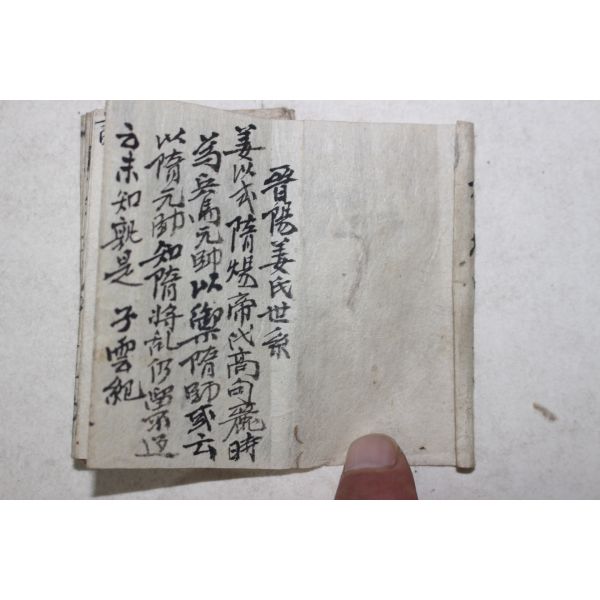 晉陽姜氏世系
姜以式隋煬帝伐高句麗時
爲兵馬元帥以禦隋師或云
以隋元帥知隋將乱仍留不返
云未知孰是 子雲紀